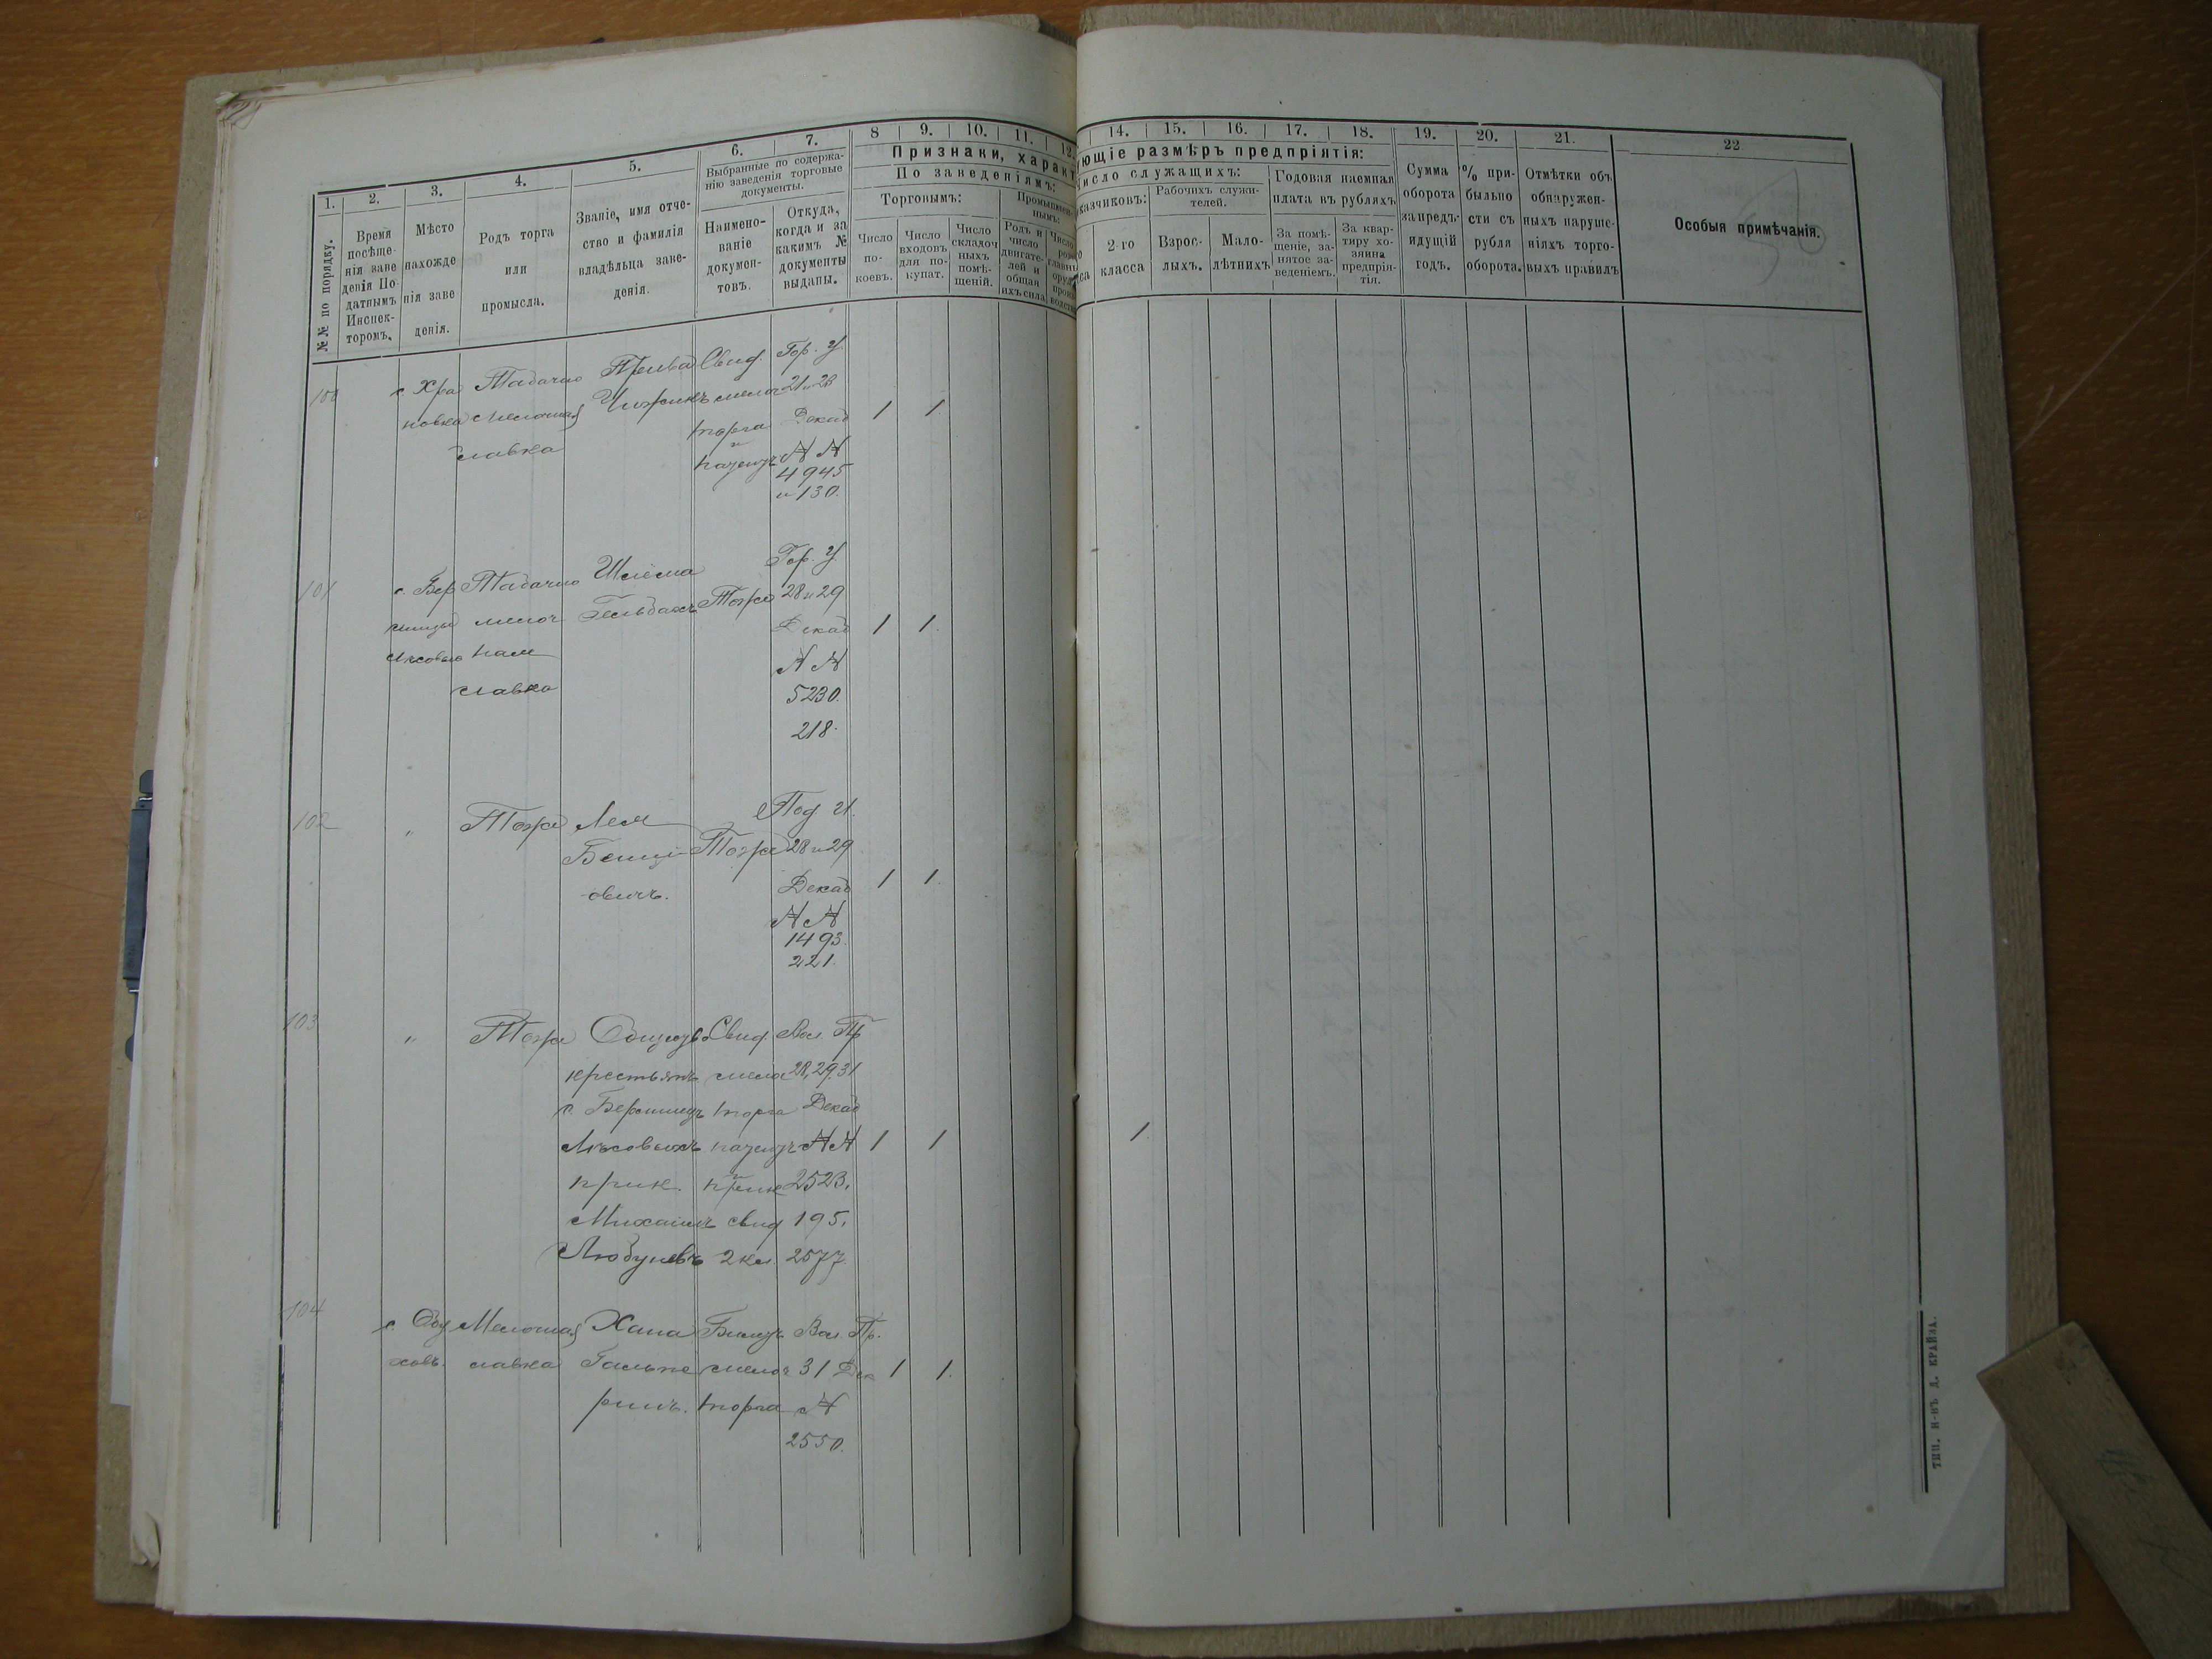 1.
2.
3.
4.
5.
6.
7.
8
9.
10.
11.
12.
14.
15.
16.
17.
18.
19.
20.
21.
22
№№ по порядку.
Время
посѣще-
нія заве
денія По-
датнымъ
Инспек-
торомъ.
Мѣсто
нахожде
нія заве
денія.
Родъ торга
или
промысла.
Званіе, имя отче-
ство и фамилія
владѣльца заве-
денія.
Выбранные по содержа-
нію заведенія торговые
документы.
Наимено-
ваніе
докумен-
товъ.
Откуда,
когда и за
какимъ №
документы
выданы.
Признаки, характ
По заведеніямъ:
Торговымъ:
Промышлен-
нымъ:
Число
по-
коевъ.
Число
входовъ
для по-
купат.
Число
складоч
ныхъ
помѣ-
щеній.
Родъ и
число
двигате-
лей и
общая
ихъ сила
Число
ующіе размѣръ предпріятія:
исло служащихъ:
казчиковъ:
2-го
класса
Рабочихъ служи-
телей.
Взрос-
лыхъ.
Мало-
лѣтнихъ
Годовая наемная
плата въ рубляхъ
За помѣ-
щеніе, за-
нятое за-
веденіемъ.
За квар-
тиру хо-
зяина
предпрія-
тія.
Сумма
оборота
за предъ-
идущій
годъ.
% при-
быльно
сти съ
рубля
оборота.
Отмѣтки объ
обнаружен-
ныхъ наруше-
ніяхъ торго-
выхъ правилъ
Особыя примѣчанія.
100
с. Хра
новка
Табачно
мелочная
лавка
Чижикъ
Свид.
мелоч
торга
и
патентъ
Гор. У
21 и 23
Декаб
№ №
4945
и 130.
1 1
101
с. Бер
Табачно
мелоч
ная
лавка
Шлема
Гельбахъ
Тоже
Гор. У
28 и 29
Декаб
№ №
5230.
218.
1 1
102
"
Тоже
Тоже
Под У.
28 и 29
Декаб
№ №
1493.
221.
1 1
103
"
Тоже
крестьянъ
прик.
Михаилъ
Свид
мелоч
торга
патентъ
и
прик
свид
2 кл.
Вол. Пр
28, 29, 31
Декаб
№ №
2523,
195,
2577.
1 1
1
104
Мелочная
лавка
Хана
Гальпе
ринъ.
Билетъ
мелоч
торга
Вол. Пр.
31 Дек
№
2550.
1 1.
ТИП. Н-ВЪ Д. КРАЙЗА.